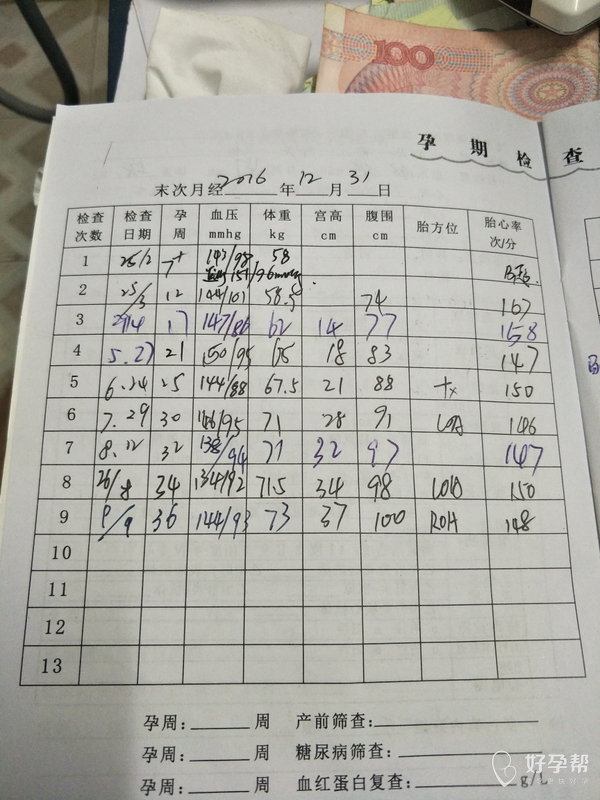 100
孕 期 检 查
末次月经 2016 年 12 月 31 日
检查次数 检查日期 孕周 血压mmhg 体重kg 宫高cm 腹围cm 胎方位 胎心率次/分
1 25/2 7+ 142/98 58 B超
151/96mmHg
2 25/3 12 144/101 58.5 74 167
3 29/4 17 147/86 62 14 77 158
4 5.27 21 150/95 65 18 83 147
5 6.24 25 144/88 67.5 21 88 150
6 7.29 30 146/95 71 28 91 LOA 146
7 8.12 32 138/94 71 32 97 147
8 26/8 34 134/92 71.5 34 98 LOA 150
9 9/9 36 144/93 73 37 100 ROA 148
10
11
12
13
孕周: 周 产前筛查:
孕周: 周 糖尿病筛查:
孕周: 周 血红蛋白复查: g/L
好孕帮